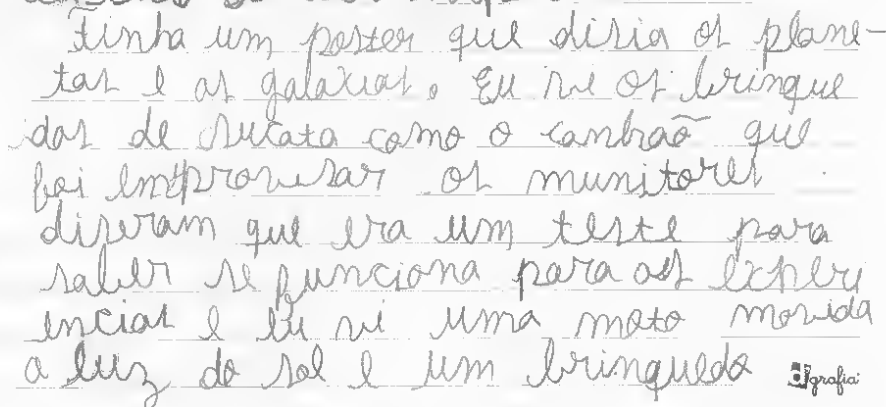 Tinha um poster que disia os plane-
tas e as galaxias. Eu ve os brinque
dos de sucata como o canbraõ que
foi emprovisar os munitores
diseram que era um teste para
saber se funciona para as experi
encias e eu vi uma moto movida
a luz do sol e um brinquedo
dgrafia